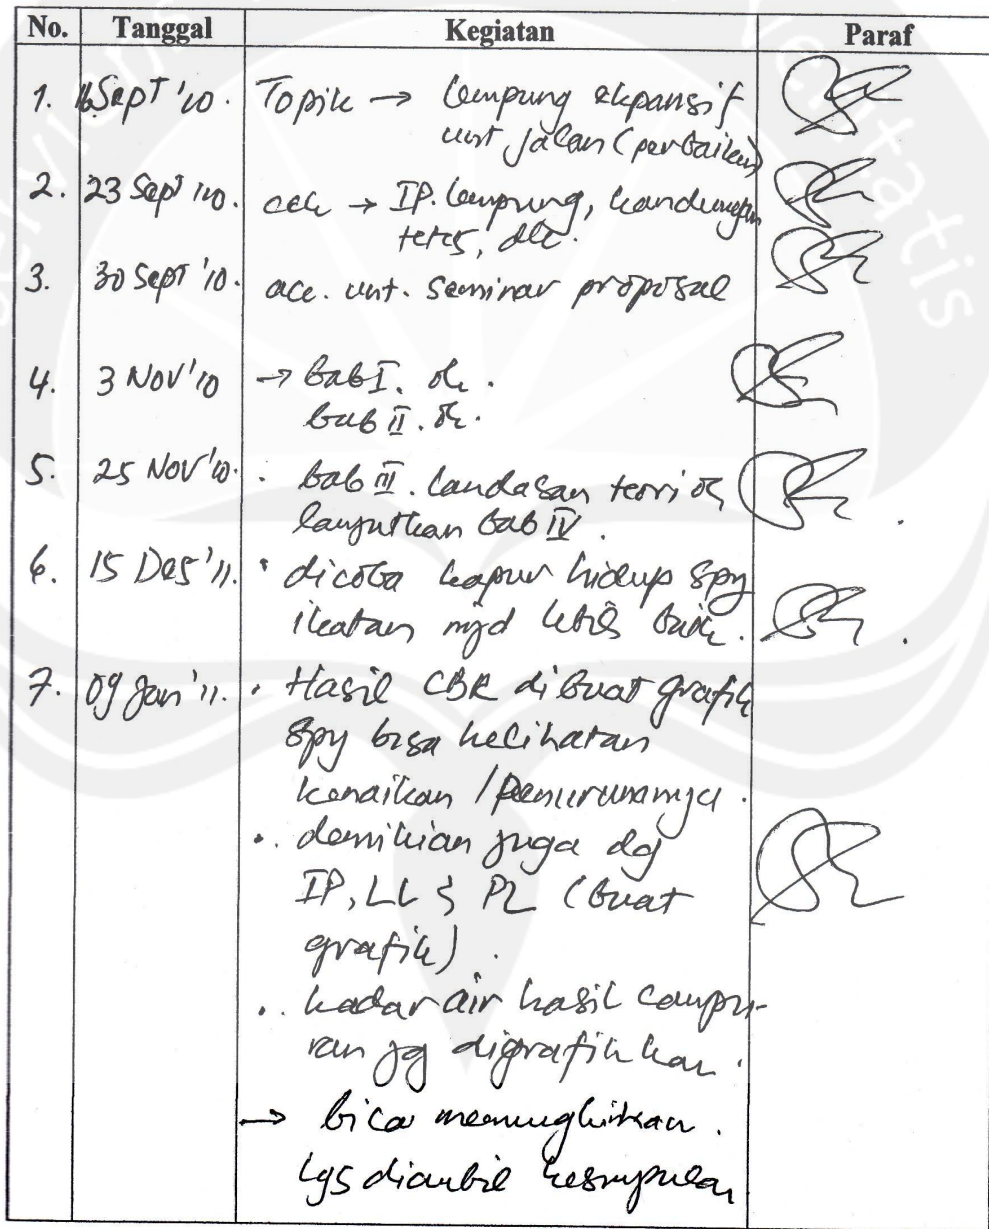 No. Tanggal Kegiatan Paraf
1. 16 Sept '10. Topik → lempung ekpansif
unt jalan (perbaikan)
2. 23 Sept '10. cek → IP. lempung, kandungan
tetes, dll.
3. 30 Sept '10. acc. unt. seminar proposal
4. 3 Nov '10 → bab I. ok.
bab II. ok.
5. 25 Nov '10. . bab III. landasan teori ok
lanjutkan bab IV.
6. 15 Des '11. • dicoba kapur hidup spy
ikatan mjd lebih baik.
7. 09 Jan '11. • Hasil CBR dibuat grafik
spy bisa kelihatan
kenaikan / penurunannya.
• demikian juga dg
IP, LL & PL (buat
grafik).
• kadar air hasil campu-
ran jg digrafikkan.
→ bica memungkinkan.
lgs diambil kesimpulan